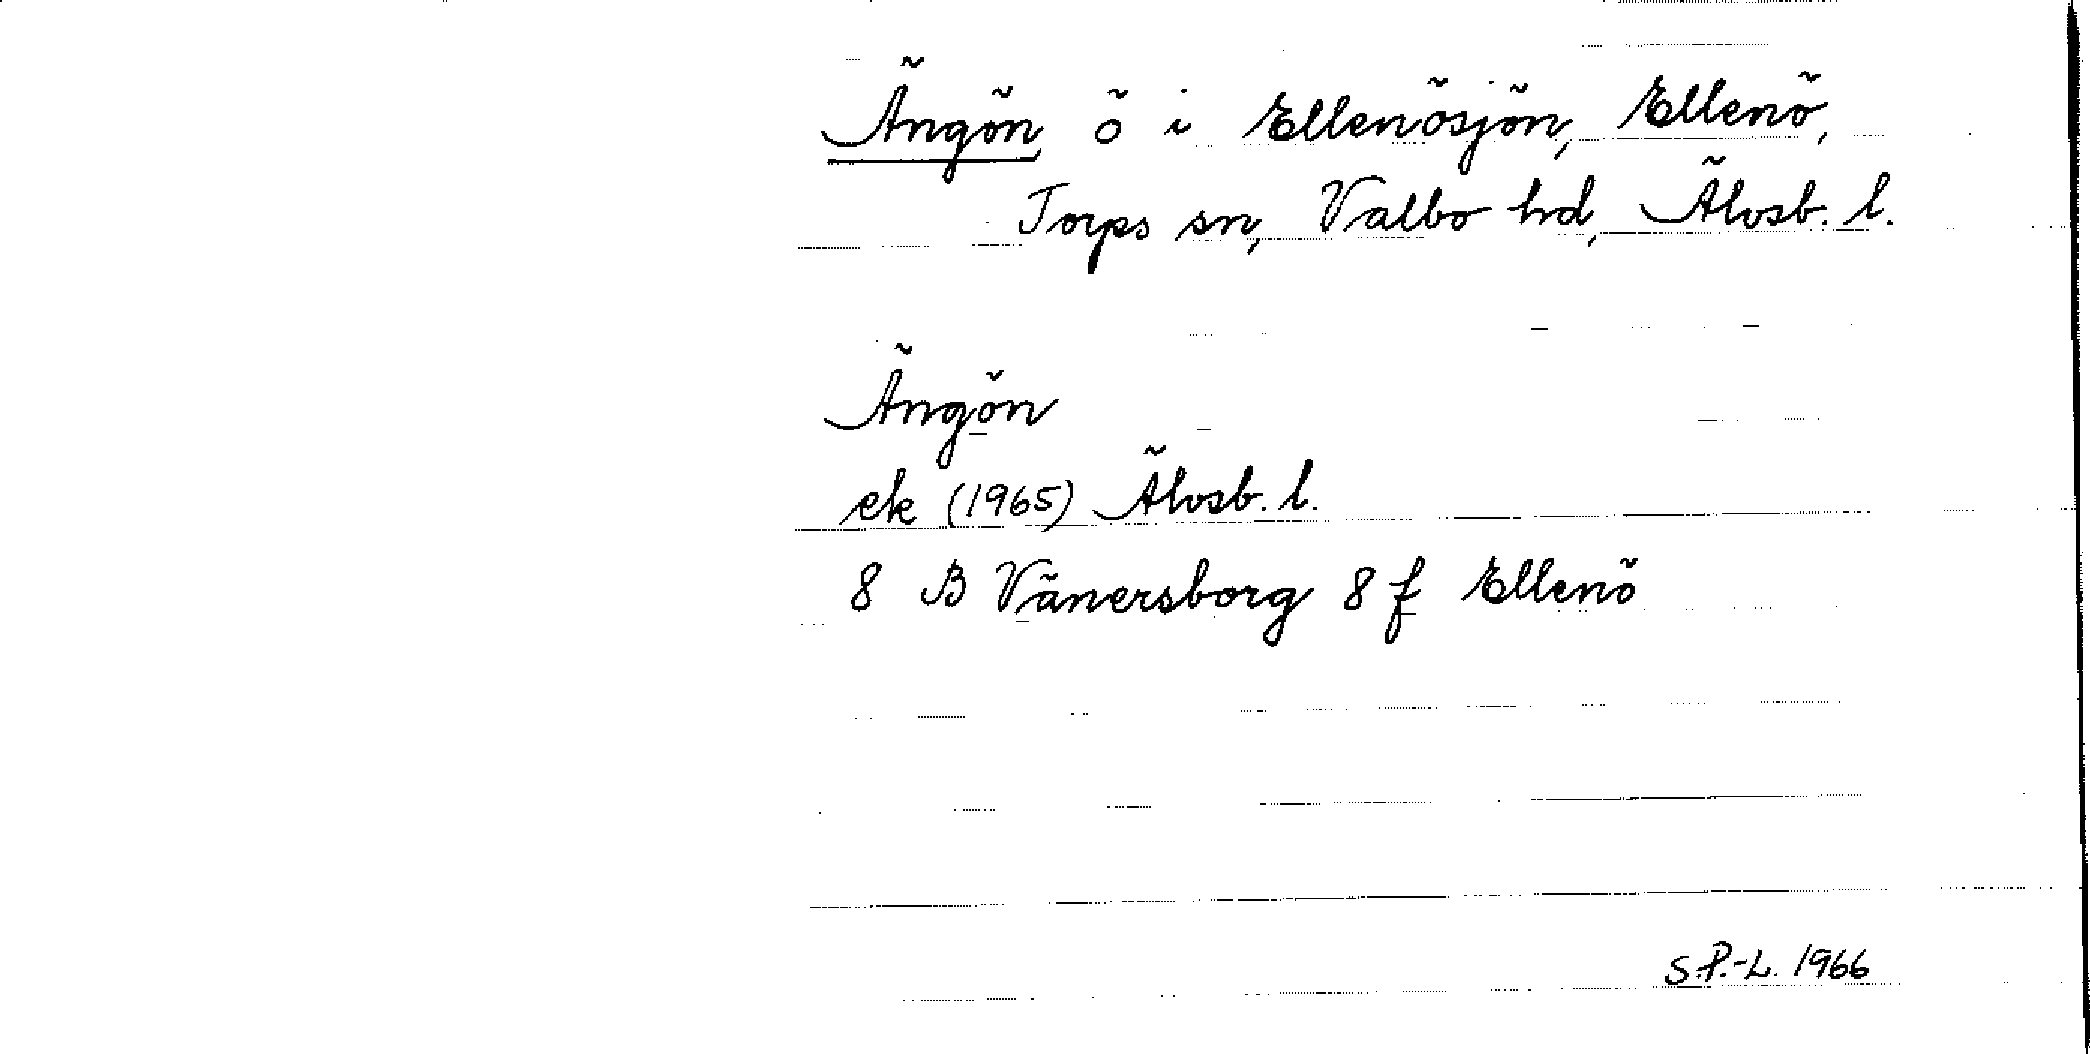 Ängön, ö i Ellenösjön, Ellenö,
Torps sn, Valbo hd, Älvsb. l.
Ängön
ek (1965) Älvsb. l.
8 B Vänersborg 8 f Ellenö
S.P.-L. 1966